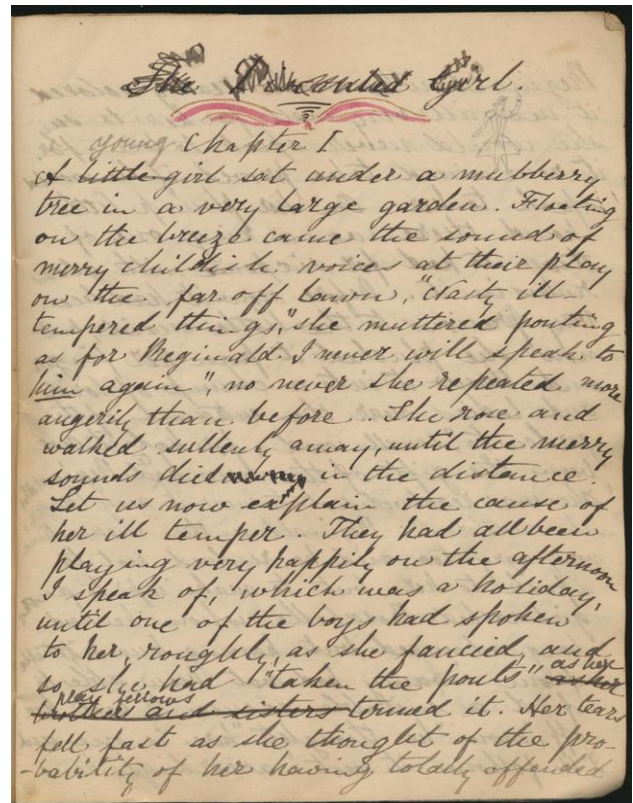 The Discontented Girl.
young Chapter I
A little girl sat under a mubberry
tree in a very large garden. Floating
on the breeze came the sound of
merry childish voices at their play
on the far off lawn, "Nasty ill-
tempered things," she muttered pouting
as for Reginald I never will speak to
him again", no never she repeated more
angerily than before. She rose and
walked sullenly away, until the merry
sounds died in the distance.
Let us now explain the cause of
her ill temper. They had all been
playing very happily on the afternoon
I speak of, which was a holiday,
until one of the boys had spoken
to her, roughly, as she fancied, and
so she had "taken the pouts", as her
as her
play fellows
brothers and sisters termed it. Her tears
fell fast as she thought of the pro-
-bability of her having totally offended